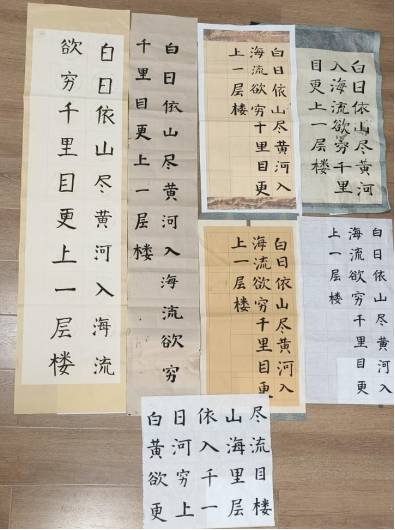 白日依山尽黄河入海流
欲穷千里目更上一层楼
白日依山尽黄河入海流欲穷
千里目更上一层楼
白日依山尽黄河入
海流欲穷千里目更
上一层楼
白日依山尽黄河
入海流欲穷千里
目更上一层楼
白日依山尽黄河入
海流欲穷千里目更
上一层楼
白日依山尽黄河入
海流欲穷千里目更
上一层楼
白日依山尽
黄河入海流
欲穷千里目
更上一层楼